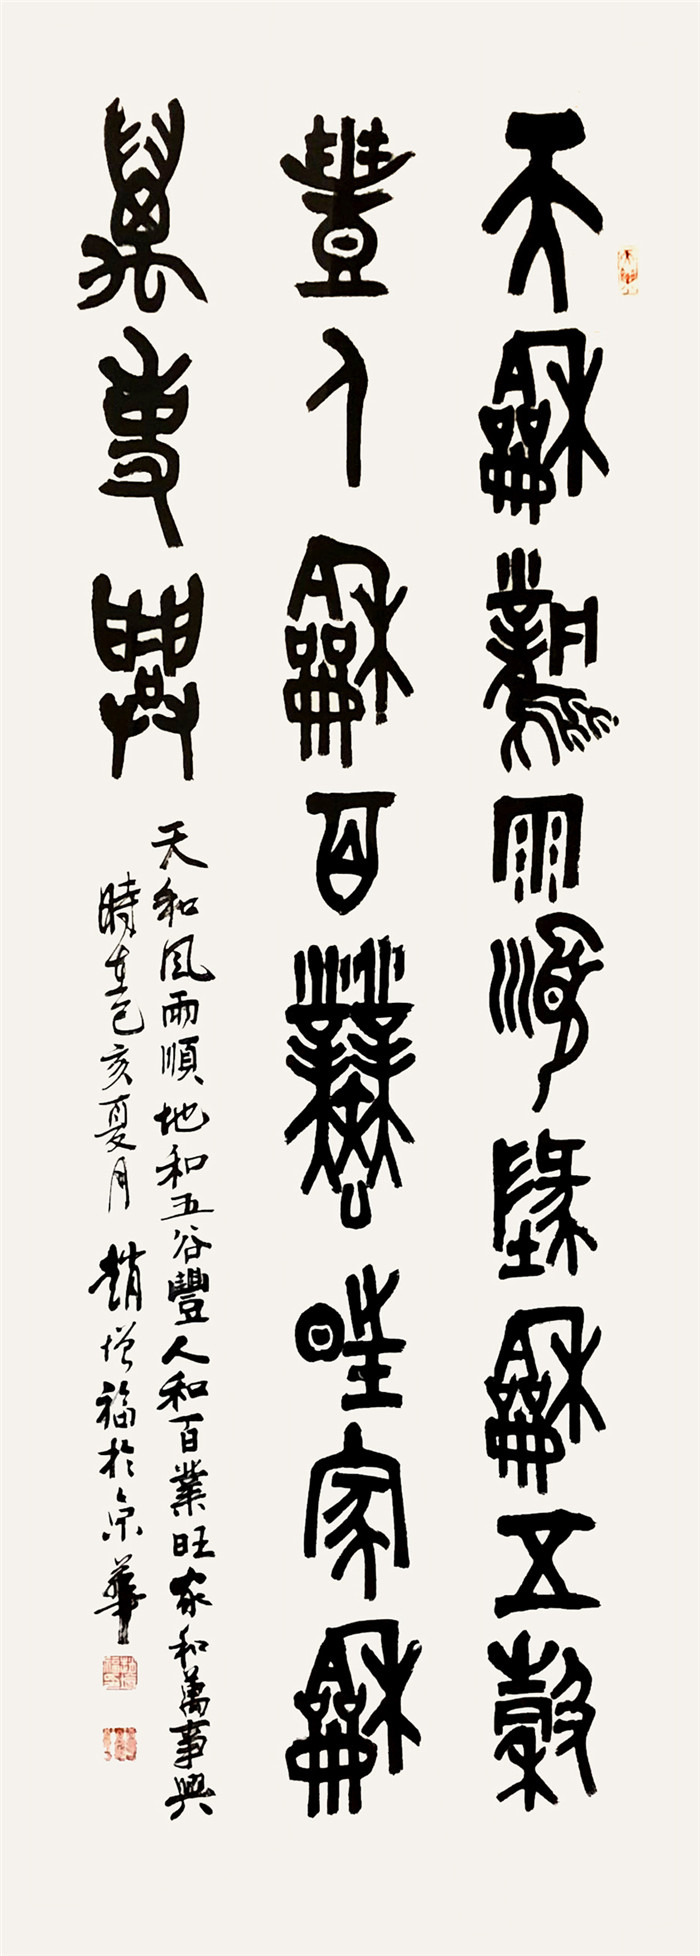 天龢風雨順墬龢五穀
豐人龢百業旺家龢
萬事興
天和風雨順地和五谷豐人和百業旺家和萬事興
時在己亥夏月趙增福於京華